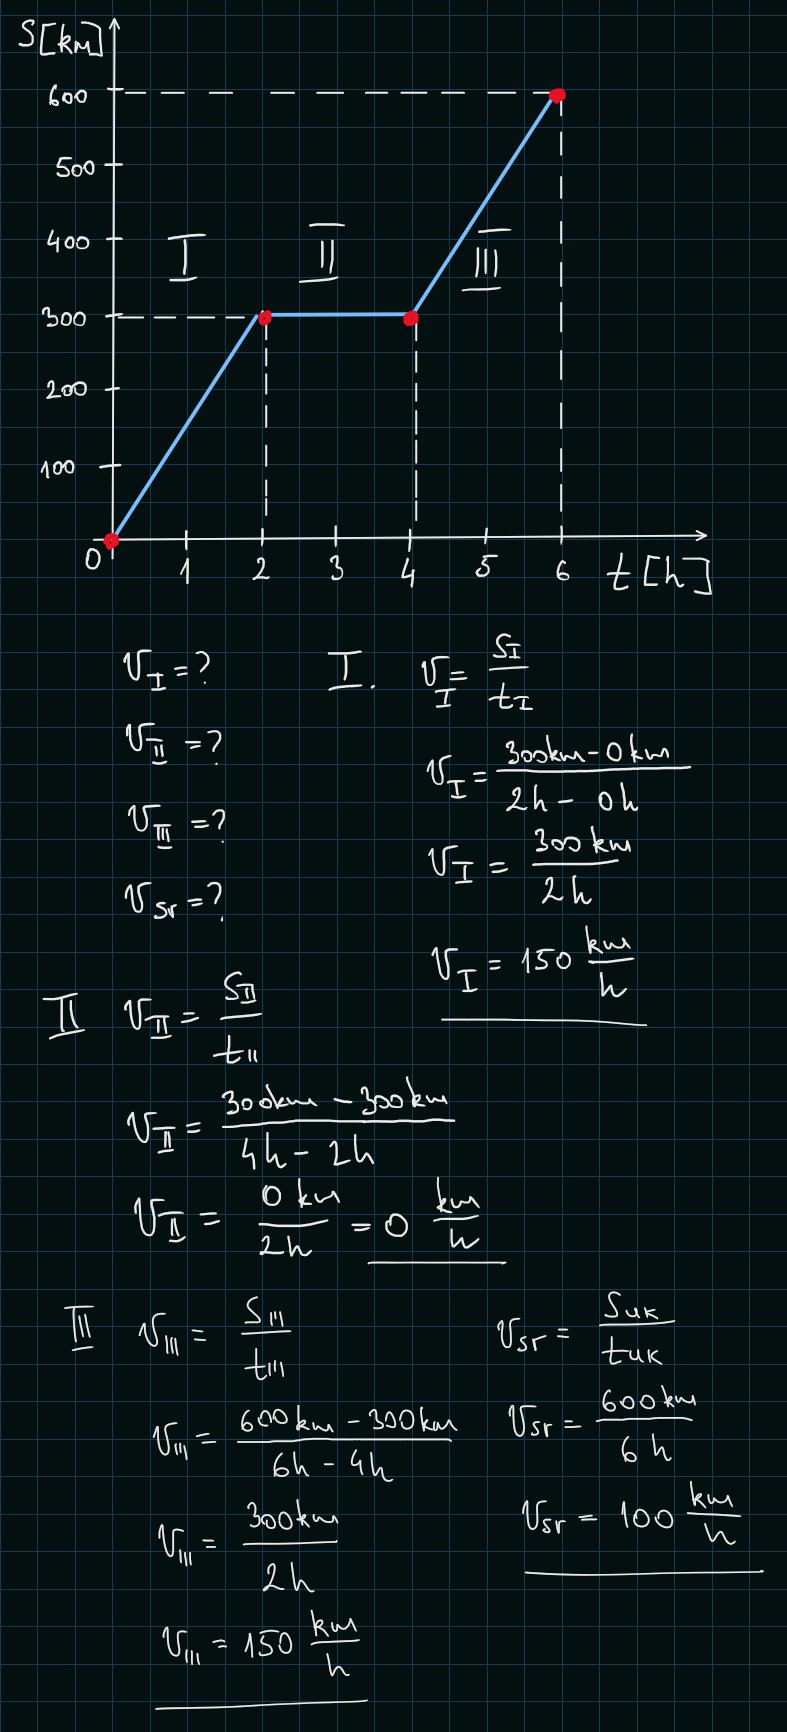 S[km]
600
500
400
300
200
100
0
I II III
1 2 3 4 5 6 t[h]
v_I = ?
v_II = ?
v_III = ?
v_sr = ?
I. v_I = s_I / t_I
v_I = (300km - 0km) / (2h - 0h)
v_I = 300km / 2h
v_I = 150 km/h
II v_II = s_II / t_II
v_II = (300km - 300km) / (4h - 2h)
v_II = 0km / 2h = 0 km/h
III v_III = s_III / t_III
v_III = (600km - 300km) / (6h - 4h)
v_III = 300km / 2h
v_III = 150 km/h
v_sr = s_uk / t_uk
v_sr = 600km / 6h
v_sr = 100 km/h